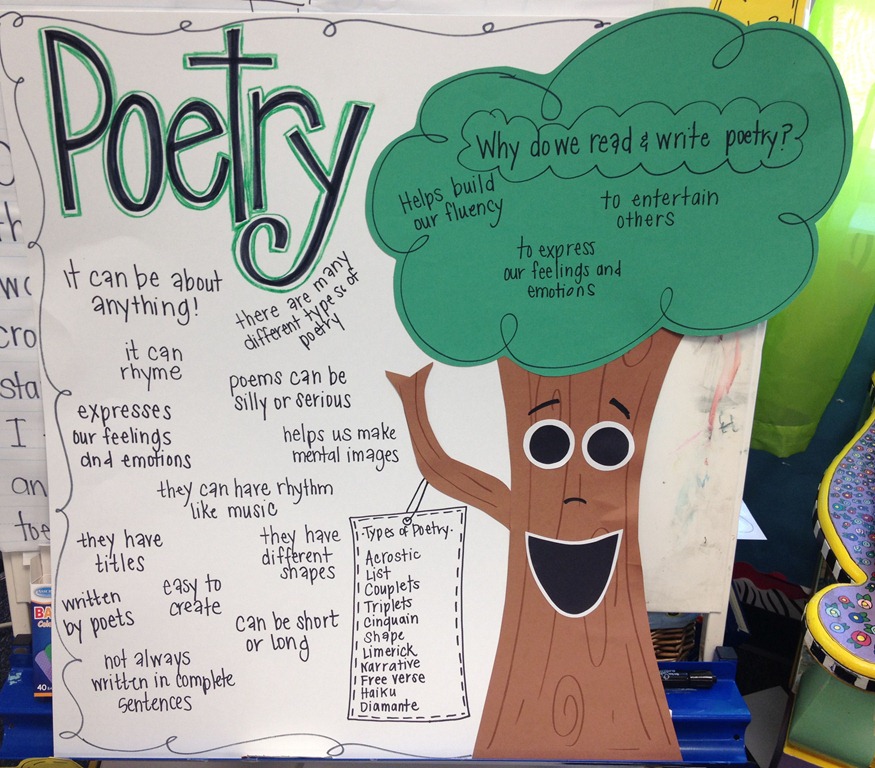 Poetry
Why do we read & write poetry?
Helps build
our fluency
to entertain
others
to express
our feelings and
emotions
it can be about
anything!
there are many
different types of
poetry
it can
rhyme
poems can be
silly or serious
expresses
our feelings
and emotions
helps us make
mental images
they can have rhythm
like music
they have
titles
they have
different
shapes
written
by poets
easy to
create
can be short
or long
not always
written in complete
sentences
·Types of Poetry·
Acrostic
List
Couplets
Triplets
Cinquain
Shape
Limerick
Narrative
Free verse
Haiku
Diamante
cro
sta
I
an
40